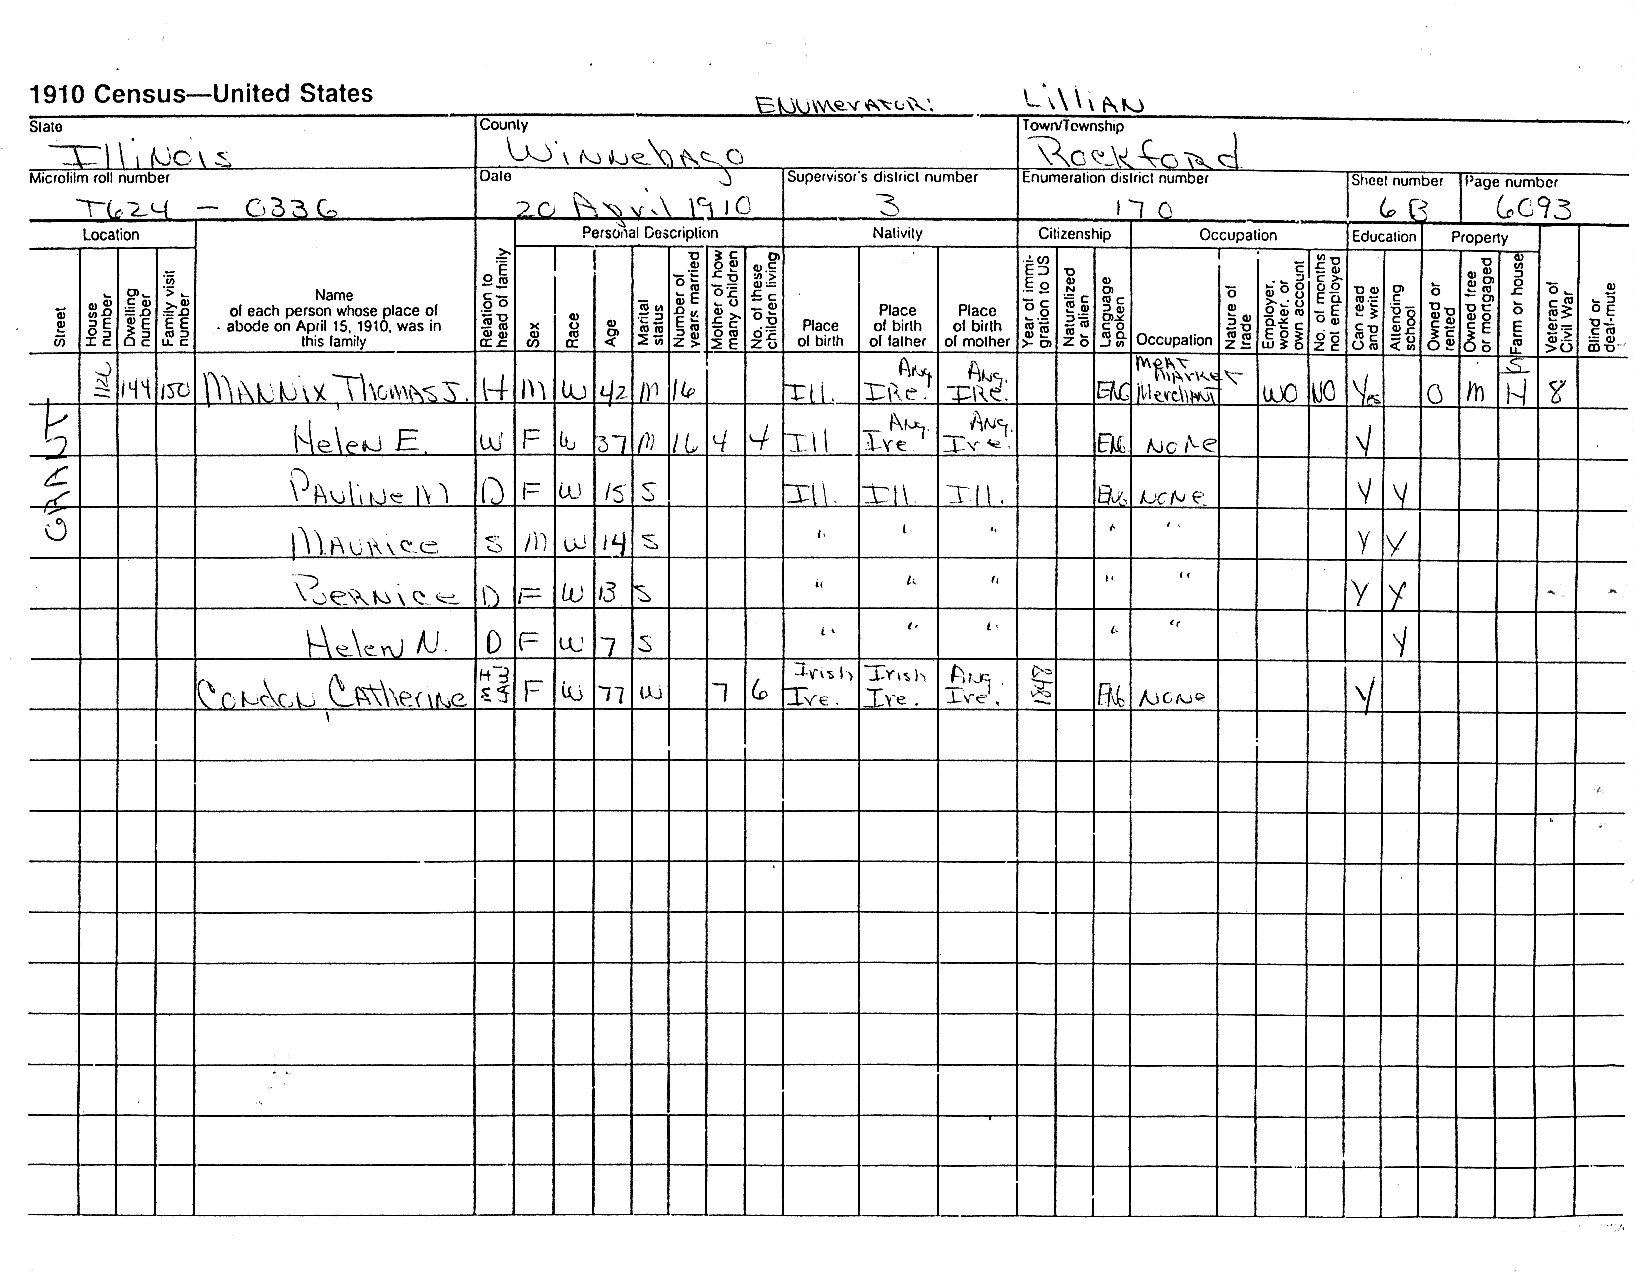 1910 Census—United States
ENUMERATOR: LilliAN
State County Town/Township
Illinois Winnebago Rockford
Microfilm roll number Date Supervisor's district number Enumeration district number Sheet number Page number
T624 - 0336 20 April 1910 3 170 6B 6093
Location Personal Description Nativity Citizenship Occupation Education Property
Street House number Dwelling number Family visit number Name of each person whose place of abode on April 15, 1910, was in this family Relation to head of family Sex Race Age Marital status Number of years married Mother of how many children No. of these children living Place of birth Place of birth of father Place of birth of mother Year of immi-gration to US Naturalized or alien Language spoken Occupation Nature of trade Employer, worker, or own account No. of months not employed Can read and write Attending school Owned or rented Owned free or mortgaged Farm or house Veteran of Civil War Blind or deaf-mute
GRANT
144 150 MANNix, ThomAS J. H M W 42 M 16 Ill. Ang IRe. Ang. IRe. ENG MEAT MARKET MerchANT WO NO Yes O M H 8
Helen E. W F W 37 M 16 4 4 Ill Ang. Ire Ang. Ire. ENG. NONe Y
PAuliNe M D F W 15 S Ill. Ill. Ill. ENG NONe Y Y
MAURice S M W 14 S " " " " " Y Y
BeRNice D F W 13 S " " " " " Y Y
Helen N. D F W 7 S " " " " " Y
CondoN, CAtheriNe F W 77 W 7 6 Irish Ire. Irish Ire. Ang. Ire. 1848 ENG NONe Y